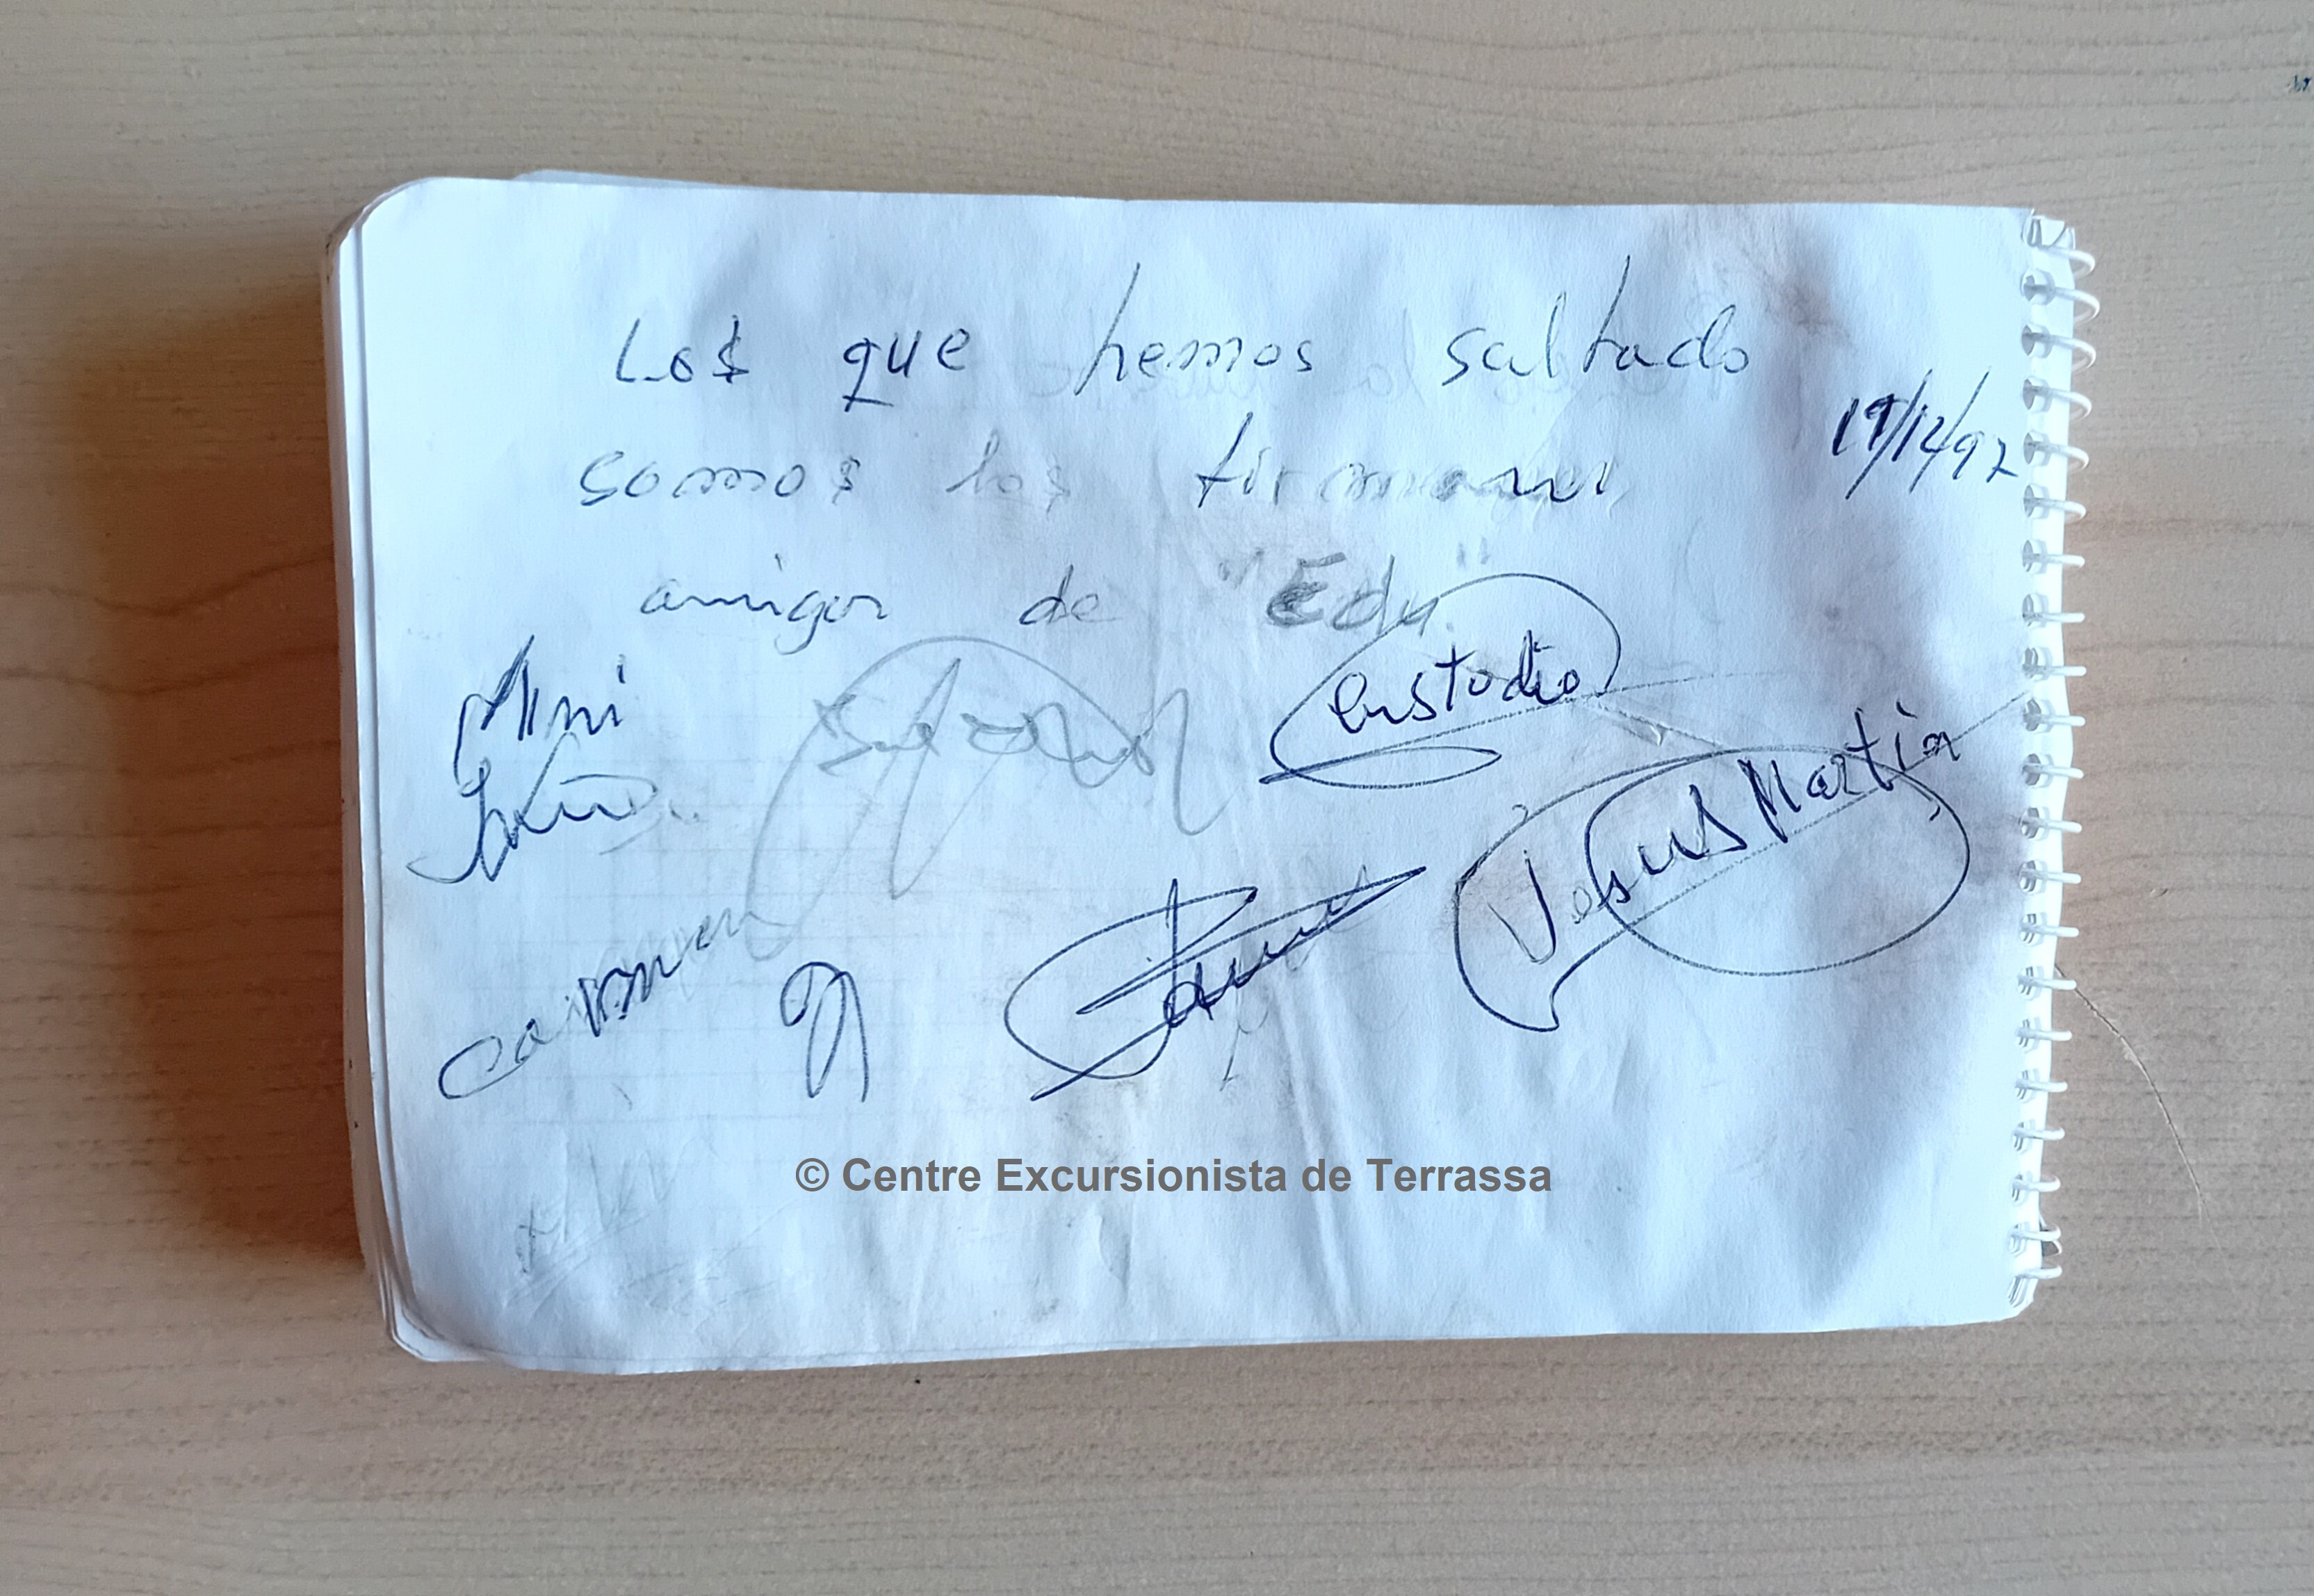 Los que hemos saltado
19/12/97
somos los firmantes
amigos de "Edu"
Mini
Custodio
Jesus Martin
Carmen
© Centre Excursionista de Terrassa